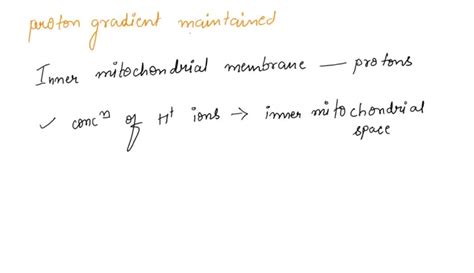 proton gradient maintained
Inner mitochondrial membrane — protons
✓ concⁿ of H⁺ ions → inner mitochondrial
space